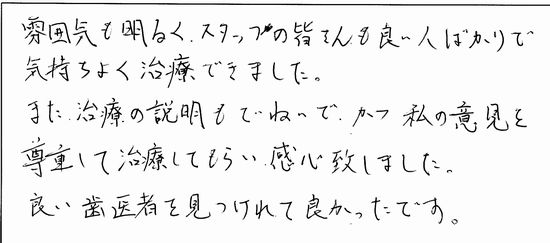 雰囲気も明るく、スタッフの皆さんも良い人ばかりで
気持ちよく治療できました。
また、治療の説明もていねいで、かつ私の意見を
尊重して治療してもらい、感心致しました。
良い歯医者を見つけれて良かったです。